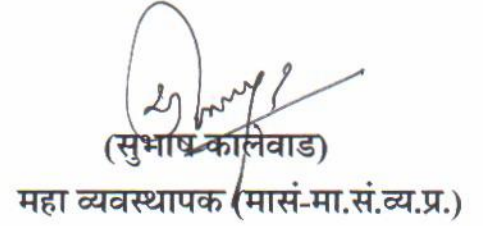 (सुभाष कालेवाड)
महा व्यवस्थापक (मासं-मा.सं.व्य.प्र.)